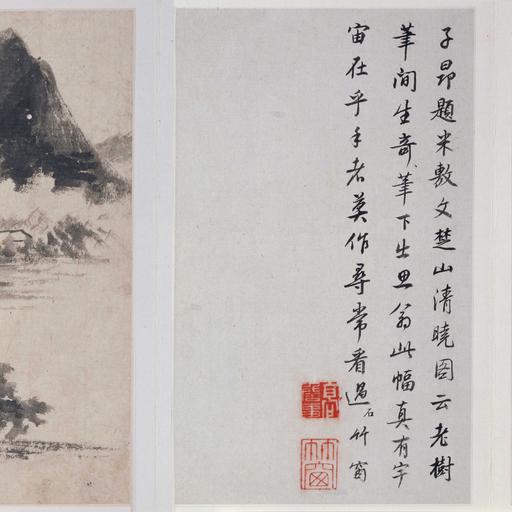 子昂題米敷文楚山清曉圖云老樹
筆间生奇筆下出思翁此幅真有宇
宙在乎手者莫作尋常看過石竹窗
竹窗